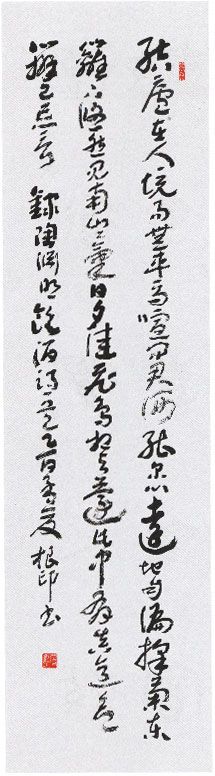 結廬在人境而無車馬喧問君何能爾心遠地自偏採菊東
籬下悠然見南山山氣日夕佳飛鳥相與還此中有真意欲
辨已忘言 錄陶淵明飲酒詩 根印書